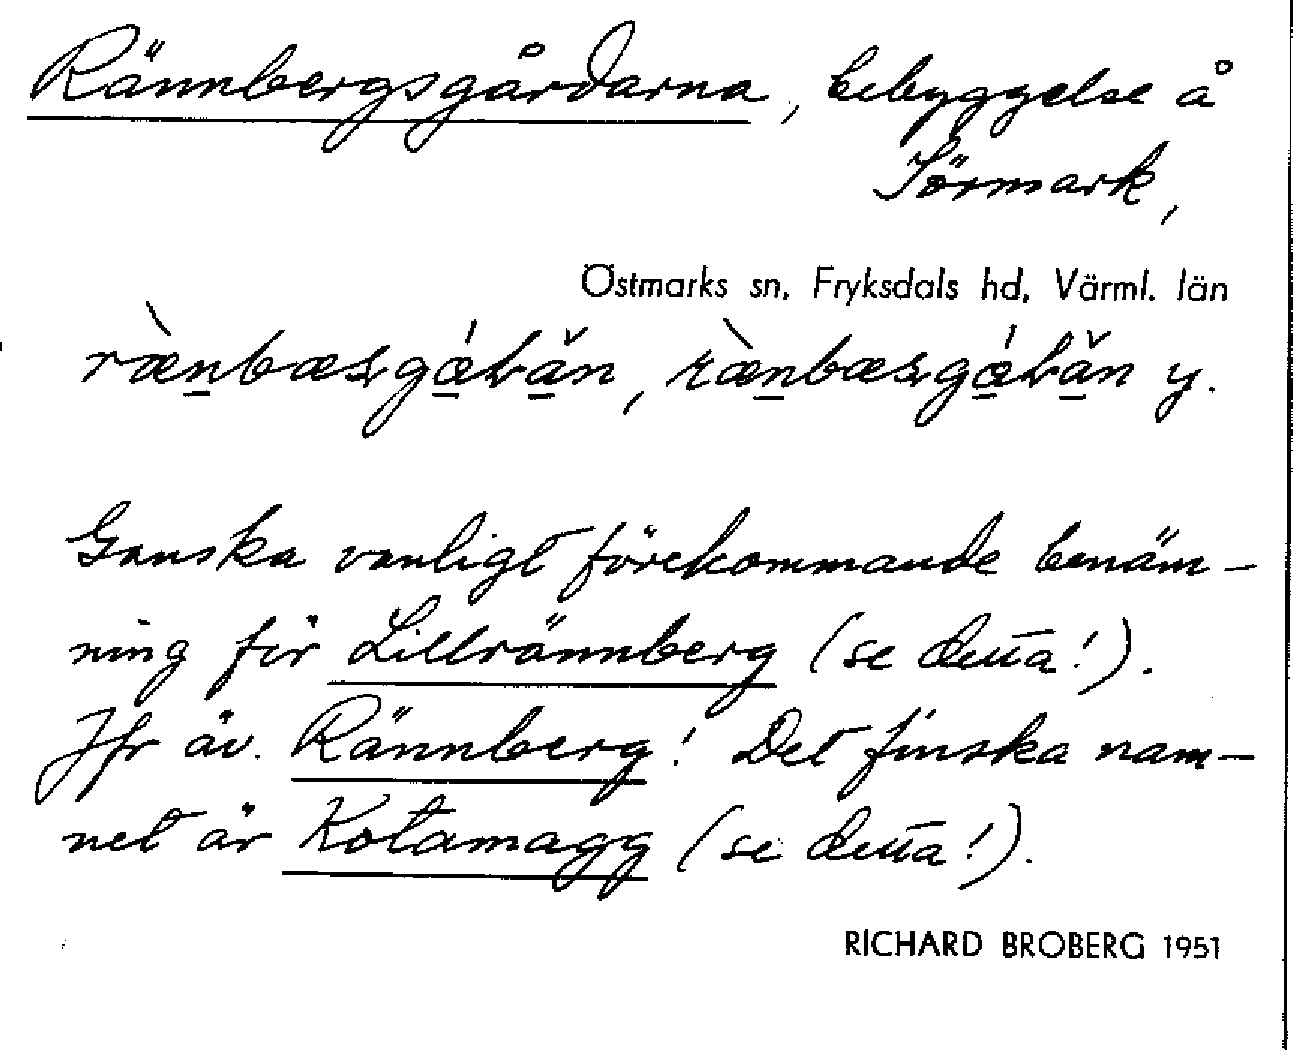 Rännbergsgårdarna, bebyggelse å
Sörmark,
Östmarks sn, Fryksdals hd, Värml. län
y.
Ganska vanligt förekommande benäm-
ning för Lillrännberg (se detta!).
Jfr äv. Rännberg! Det finska nam-
net är Kotamagg (se detta!).
RICHARD BROBERG 1951